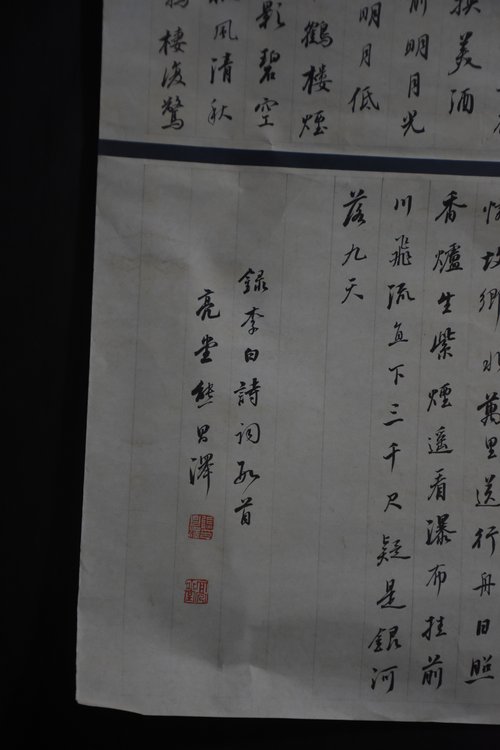 換美酒
前明月光
明月低
鶴樓煙
影碧空
風清秋
棲復驚
故鄉水萬里送行舟日照
香爐生紫煙遥看瀑布挂前
川飛流直下三千尺疑是銀河
落九天
錄李白詩詞數首
亮堂熊澤